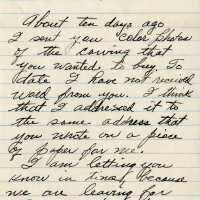 About ten days ago
I sent you color photos
of the carving that
you wanted to buy. To
date I have not received
word from you. I think
that I addressed it to
the same address that
you wrote on a piece
of paper for me.
I am letting you
know in time because
we are leaving for